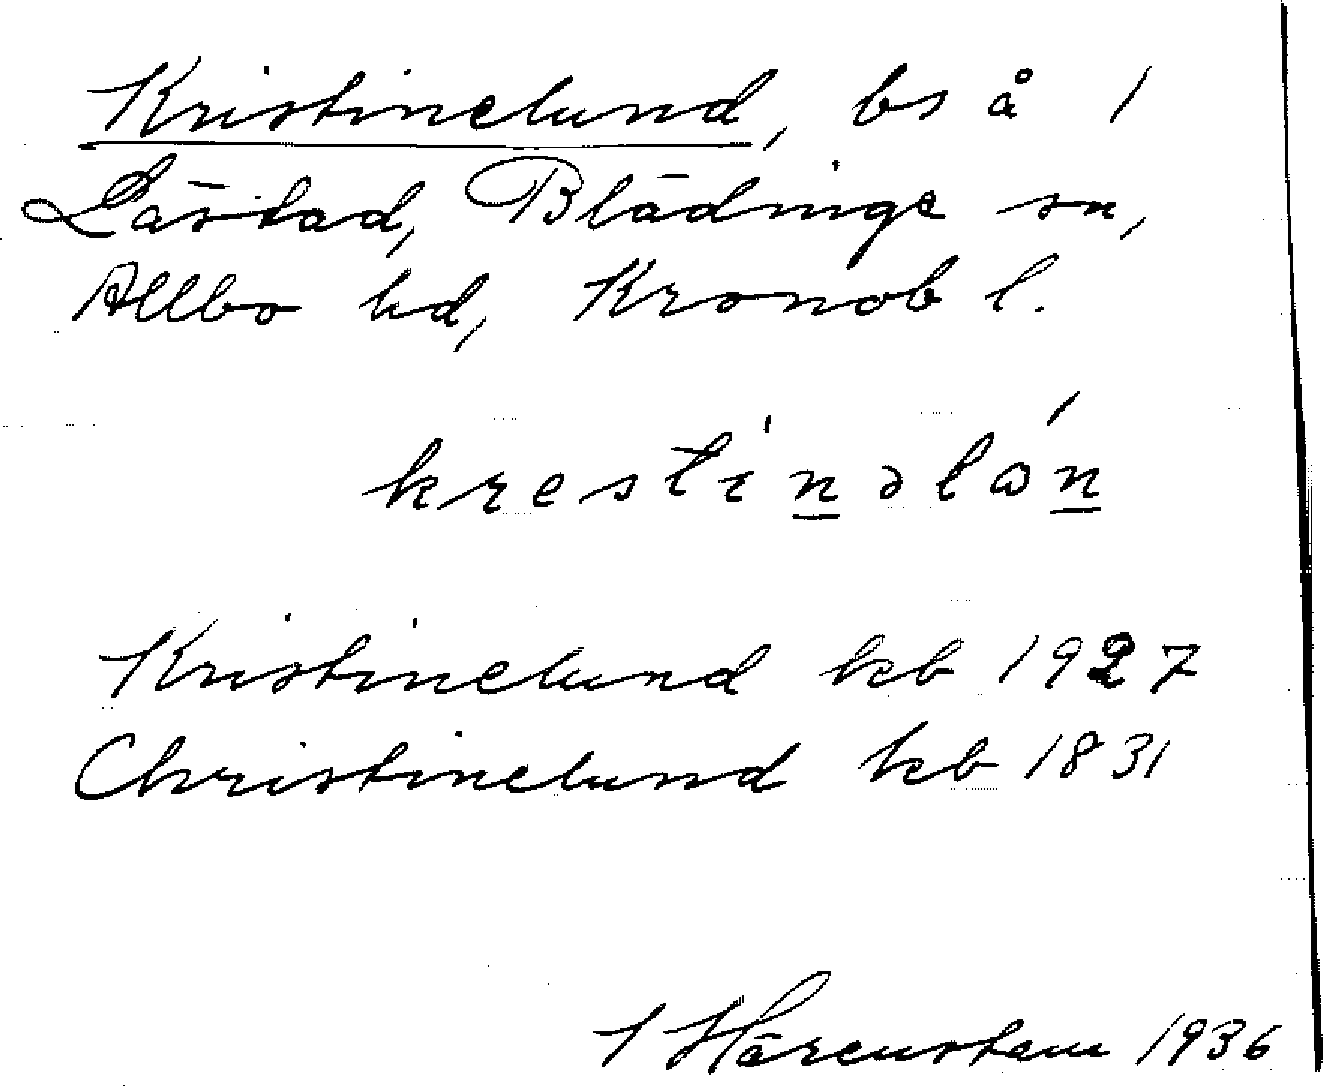 Kristinelund, bs å 1
Låstad, Blädinge sn,
Allbo hd, Kronob l.
krestinəlón
Kristinelund kb 1927
Christinelund kb 1831
Härenstam 1936